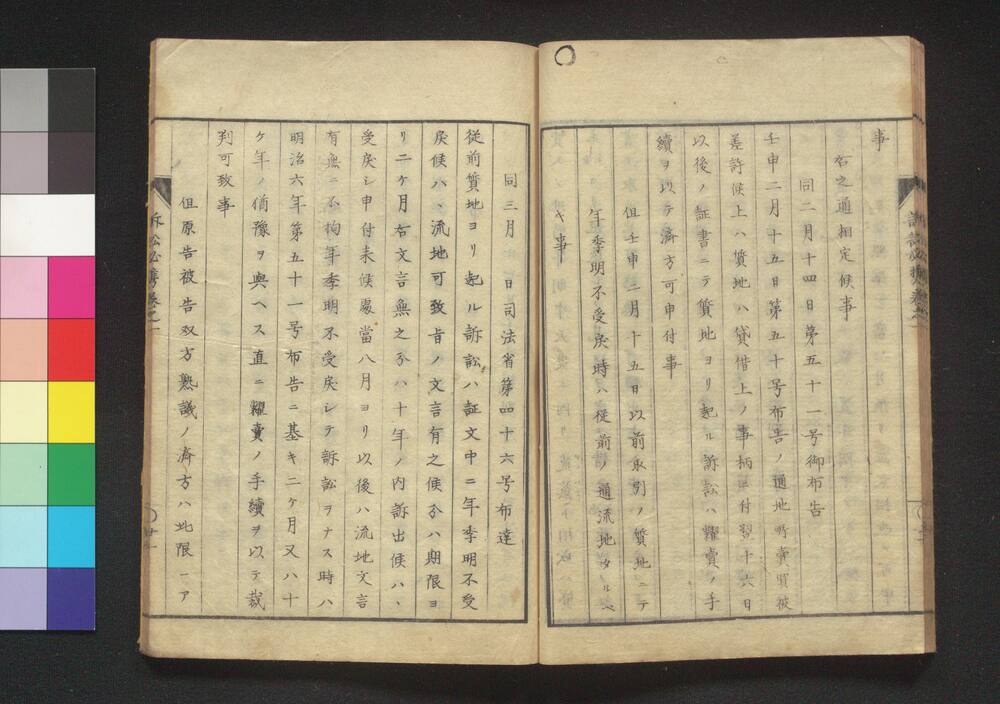 事
右之通相定候事
同二月十四日第五十一号御布告
壬申二月十五日第五十号布告ノ通地所賣買被
差許候上ハ質地ハ貸借上ノ事柄ニ付翌十六日
以後ノ証書ニテ質地ヨリ起ル訴訟ハ糶賣ノ手
續ヲ以テ済方可申付事
但壬申二月十五日以前取引ノ質地ニテ
年季明不受戻時ハ従前ノ通流地タルヘ
キ事
同三月 日司法省第四十六号布達
従前質地ヨリ起ル訴訟ハ証文中ニ年季明不受
戻候ハヽ流地可致旨ノ文言有之候分ハ期限ヨ
リ二ケ月右文言無之分ハ十年ノ内訴出候ハヽ
受戻シ申付来候處當八月ヨリ以後ハ流地文言
有無ニ不拘年季明不受戻シテ訴訟ヲナス時ハ
明治六年第五十一号布告ニ基キ二ケ月又ハ十
ケ年ノ猶豫ヲ與ヘス直ニ糶賣ノ手續ヲ以テ裁
判可致事
但原告被告双方熟議ノ済方ハ此限ニア
訴訟必携巻之一